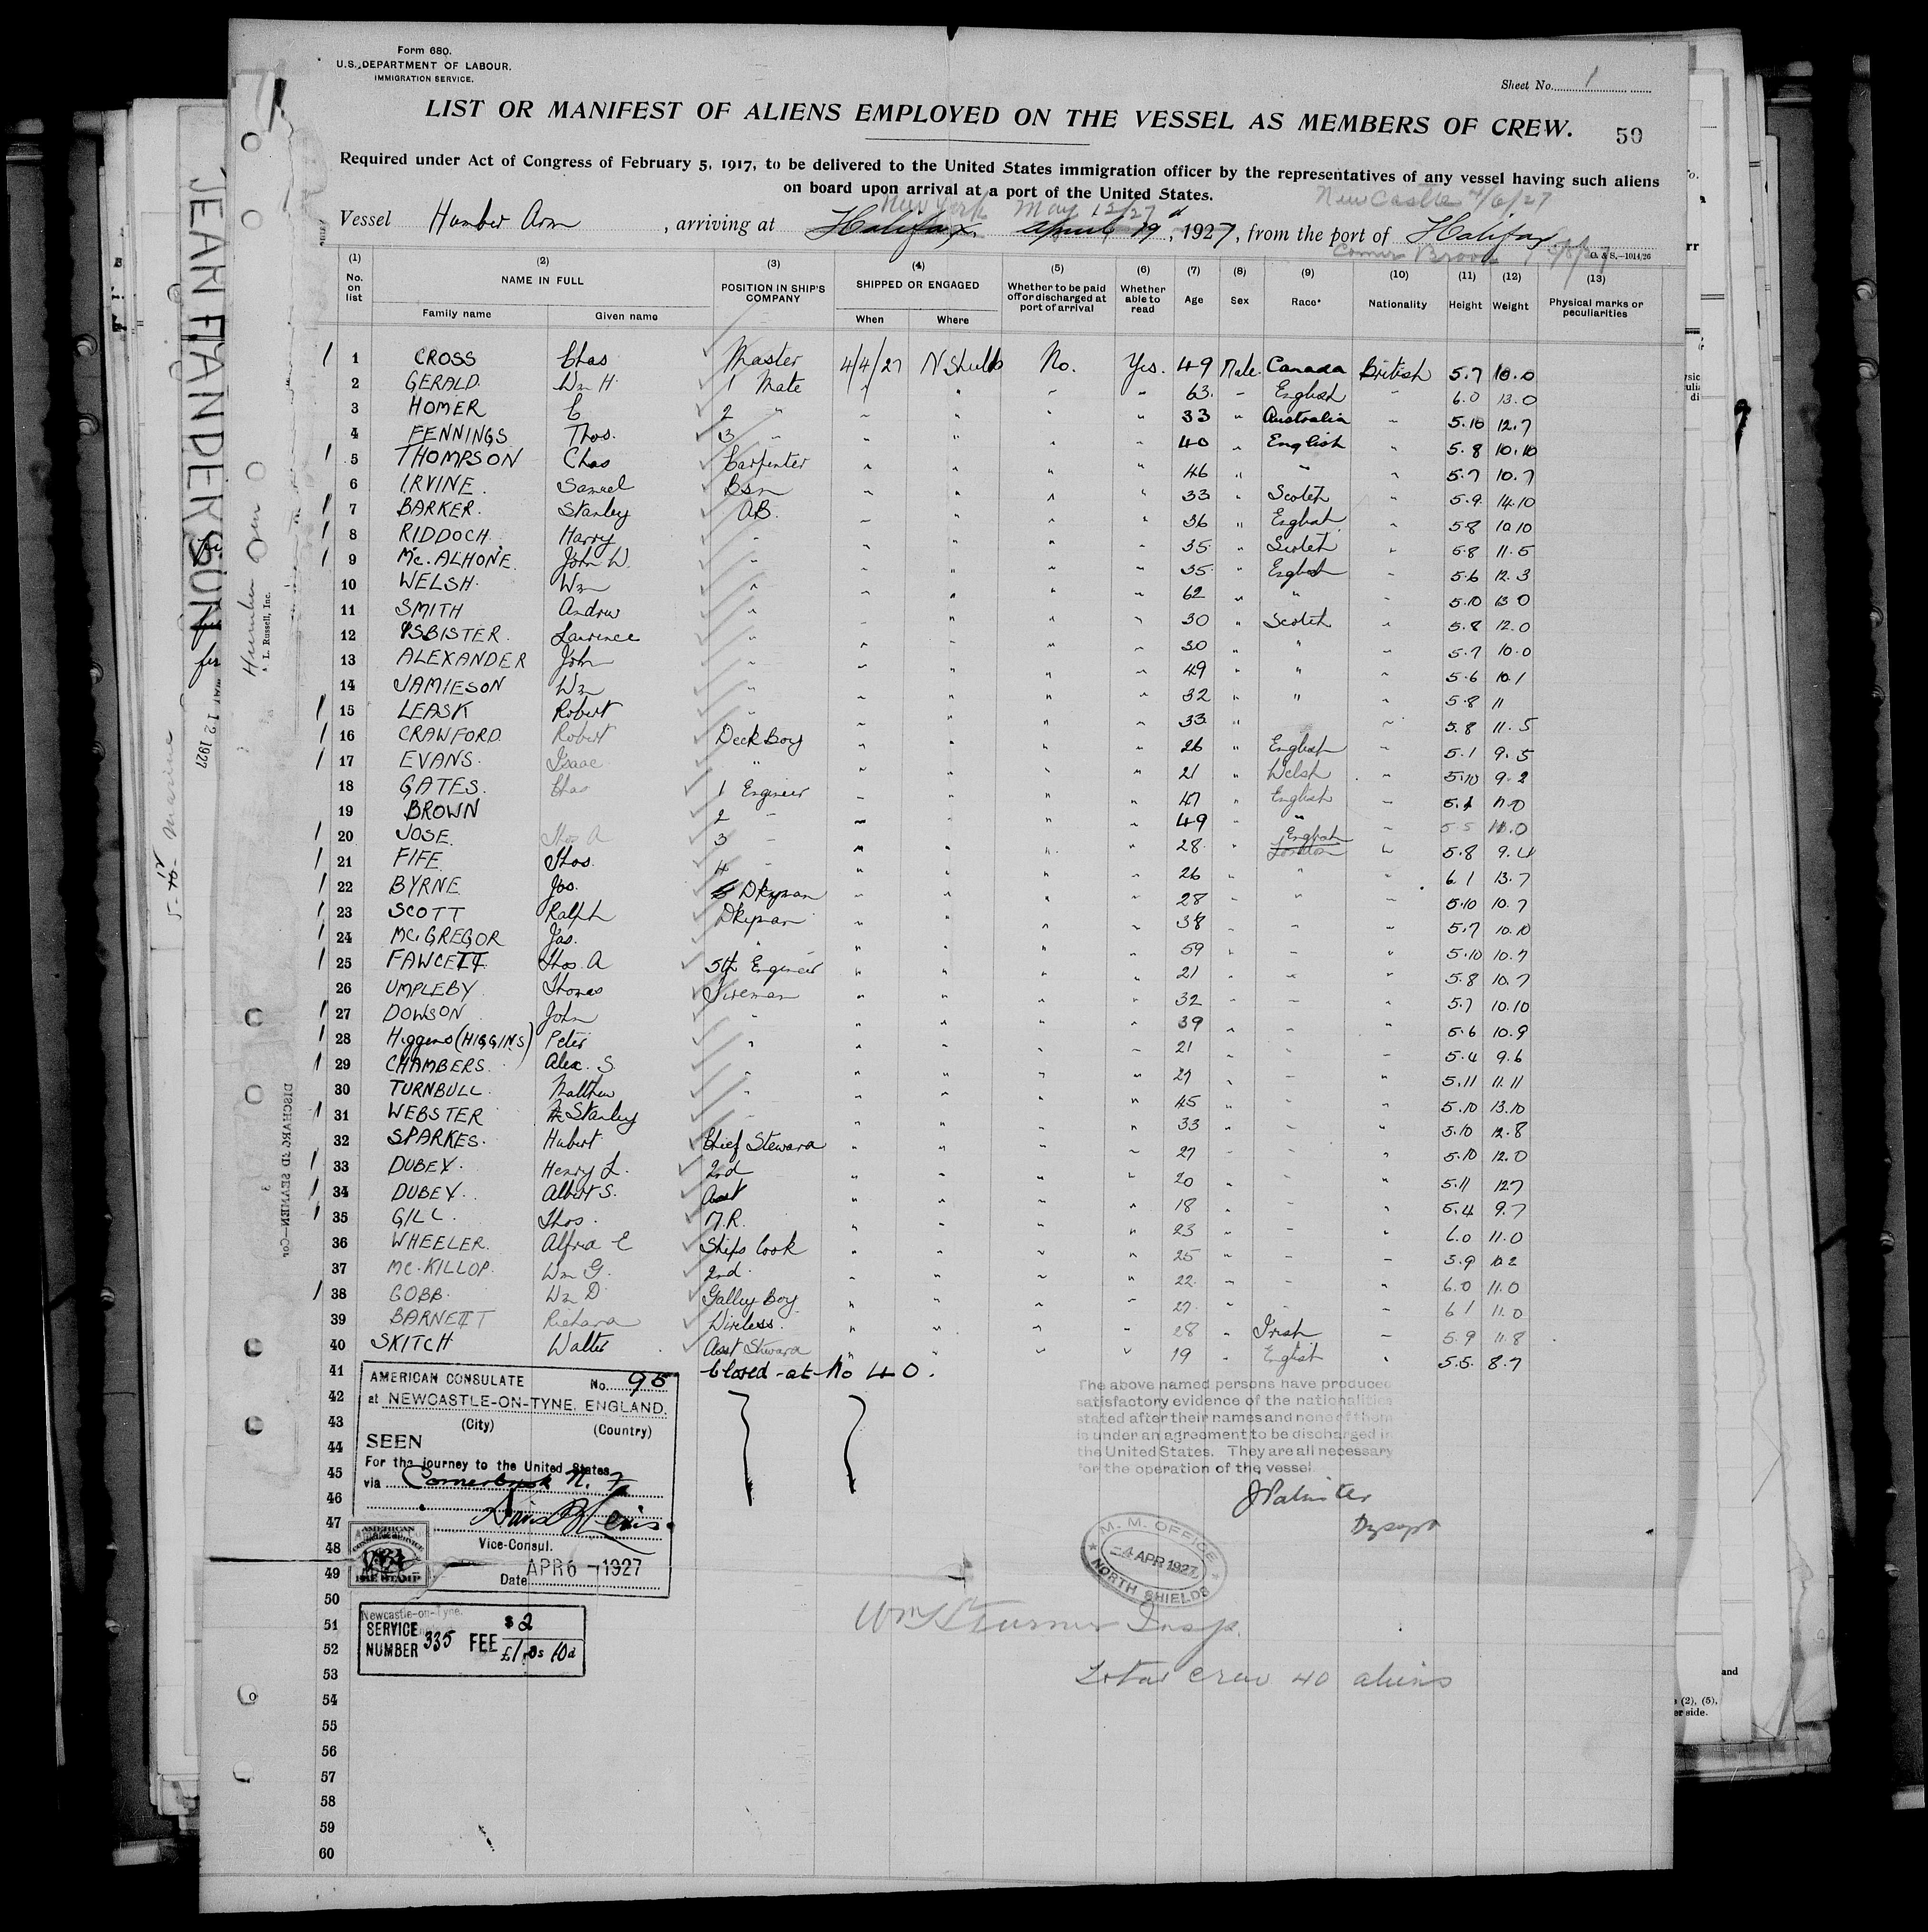 Form 680.
U.S. DEPARTMENT OF LABOUR.
IMMIGRATION SERVICE.
Sheet No. 1
LIST OR MANIFEST OF ALIENS EMPLOYED ON THE VESSEL AS MEMBERS OF CREW.
50
Required under Act of Congress of February 5, 1917, to be delivered to the United States immigration officer by the representatives of any vessel having such aliens
on board upon arrival at a port of the United States.
New York May 12/27 New Castle 4/6/27
Vessel Humber Arm, arriving at Halifax, April 19, 1927, from the port of Halifax
Corner Brook
O. & S.—1014/26
(1) (2) (3) (4) (5) (6) (7) (8) (9) (10) (11) (12) (13)
No. on list NAME IN FULL POSITION IN SHIP'S COMPANY SHIPPED OR ENGAGED Whether to be paid off or discharged at port of arrival Whether able to read Age Sex Race* Nationality Height Weight Physical marks or peculiarities
Family name Given name When Where
1 CROSS Chas Master 4/4/27 N Shields No. Yes. 49 Male. Canada British 5.7 10.0
2 GERALD. Wm H. 1 Mate " " " " 63. " English " 6.0 13.0
3 HOMER C 2 " " " " " 33 " Australia " 5.10 12.7
4 FENNINGS Thos. 3 " " " " " 40 " English " 5.8 10.10
5 THOMPSON Chas Carpenter " " " " 46 " " " 5.7 10.7
6 IRVINE. Samuel Bsn " " " " 33 " Scotch " 5.9 14.10
7 BARKER. Stanley AB. " " " " 36 " English " 5.8 10.10
8 RIDDOCH. Harry " " " " " 35 " Scotch " 5.8 11.5
9 Mc.ALHONE. John W. " " " " " 35 " English " 5.6 12.3
10 WELSH. Wm " " " " " 62 " " " 5.10 13.0
11 SMITH Andrew " " " " " 30 " Scotch " 5.8 12.0
12 ISBISTER. Lawrence " " " " " 30 " " " 5.7 10.0
13 ALEXANDER John " " " " " 49 " " " 5.6 10.1
14 JAMIESON Wm " " " " " 32 " " " 5.8 11
15 LEASK Robert " " " " " 33 " " 5.8 11.5
16 CRAWFORD. Robert Deck Boy " " " " 26 " English " 5.1 9.5
17 EVANS. Isaac " " " " " 21 " Welsh " 5.10 9.2
18 GATES. Chas 1 Engineer " " " " 47 " English " 11.0
19 BROWN 2 " " " " " 49 " " " 5.5 11.0
20 JOSE. Thos A 3 " " " " " 28. " English London " 5.8 9.4
21 FIFE. Thos. 4 " " " " " 26 " " " 6.1 13.7
22 BYRNE Jos. Dkyman " " " " 28 " " " 5.10 10.7
23 SCOTT Ralph Dkyman " " " " 38 " " " 5.7 10.10
24 MC.GREGOR Jas. " " " " " 59 " " " 5.10 10.7
25 FAWCETT Thos. A 5th Engineer " " " " 21 " " " 5.8 10.7
26 UMPLEBY Thomas Fireman " " " " 32 " " " 5.7 10.10
27 DOWSON John " " " " " 39 " " " 5.6 10.9
28 Higgens (HIGGINS) Peter " " " " " 21 " " " 5.4 9.6
29 CHAMBERS. Alex. S. " " " " " 27 " " " 5.11 11.11
30 TURNBULL. Matthew " " " " " 45 " " " 5.10 13.10
31 WEBSTER Stanley " " " " " 33 " " " 5.10 12.8
32 SPARKES. Hubert Chief Steward " " " " 27 " " " 5.10 12.0
33 DUBEY. Henry L. 2nd " " " " 20 " " " 5.11 12.7
34 DUBEY. Albert S. Asst " " " " 18 " " " 5.4 9.7
35 GILL. Thos. M.R. " " " " 23 " " " 6.0 11.0
36 WHEELER. Alfred E Ships Cook " " " " 25 " " " 5.9 10.2
37 MC.KILLOP. Wm G. 2nd " " " " 22. " " " 6.0 11.0
38 COBB. Wm D. Galley Boy " " " " 27. " " " 6.1 11.0
39 BARNETT Richard Wireless. " " " " 28 " Irish " 5.9 11.8
40 SKITCH Walter Asst Steward " " " " 19 " English " 5.5. 8.7
41 Closed at No 40.
42
43
44
45
46
47
48
49
50
51
52
53
54
55
56
57
58
59
60
AMERICAN CONSULATE No. 95
at NEWCASTLE-ON-TYNE, ENGLAND.
(City) (Country)
SEEN
For the journey to the United States
via Cornerbrook N. F
Vice-Consul.
Date APR 6 - 1927
AMERICAN
FEE STAMP
Newcastle-on-Tyne.
SERVICE NUMBER 335 FEE $2
£1.0s 10d
The above named persons have produced
satisfactory evidence of the nationalities
stated after their names and none of them
is under an agreement to be discharged in
the United States. They are all necessary
for the operation of the vessel
M. M. OFFICE
-4 APR 1927
NORTH SHIELDS
Wm Turner Insp.
Total crew 40 aliens
JEAN F. ANDERSON
Humber Arm
L. Russell, Inc.
MAY 12 1927
DISCHARGED SEAMEN
and
(2), (5),
er side.